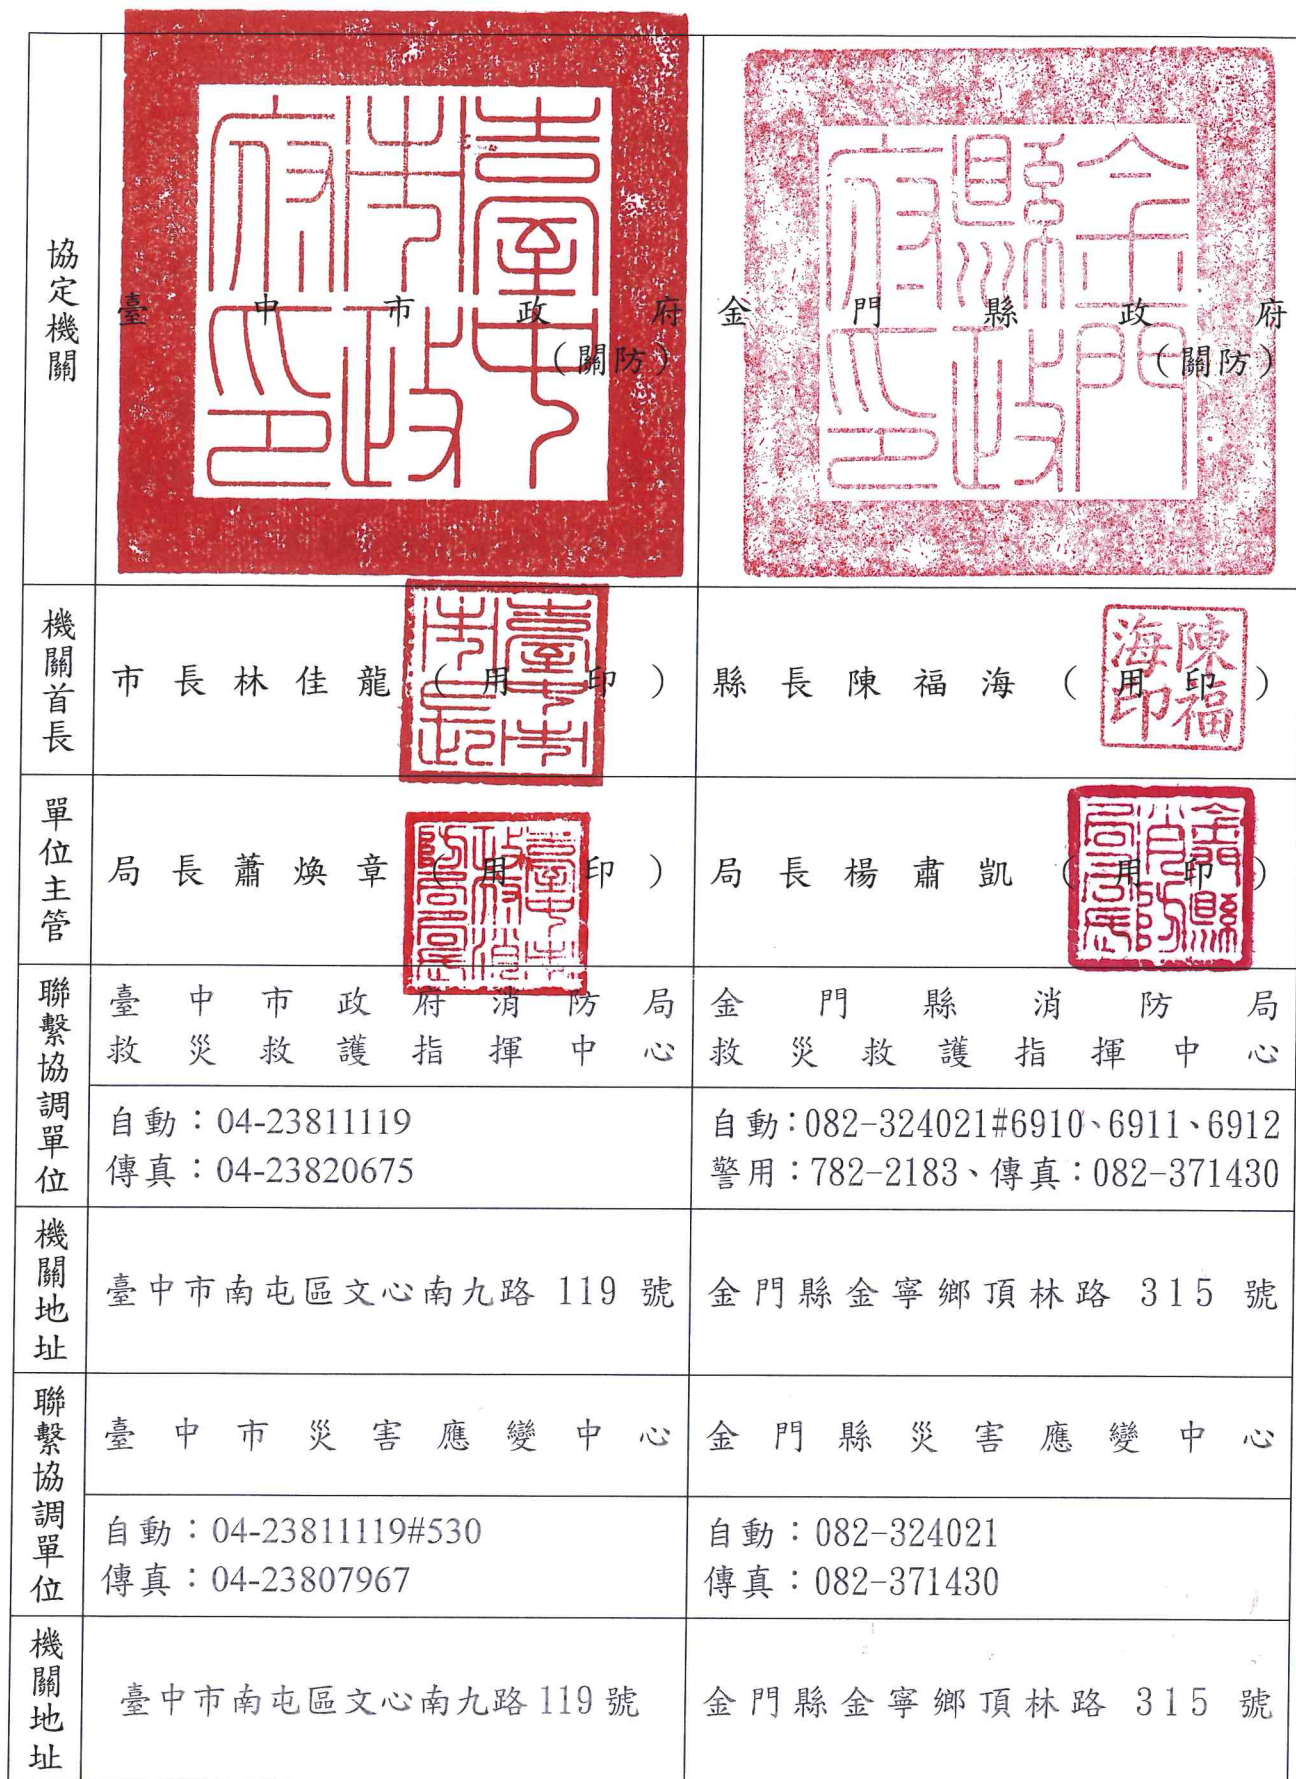 協定機關
臺中市政府
（關防）
金門縣政府
（關防）
臺中市政府印
金門縣政府印
機關首長
市長林佳龍（用印）
臺中市市長
縣長陳福海（用印）
陳福海印
單位主管
局長蕭煥章（用印）
臺中市政府消防局局長
局長楊肅凱（用印）
金門縣消防局局長
聯繫協調單位
臺中市政府消防局
救災救護指揮中心
金門縣消防局
救災救護指揮中心
自動：04-23811119
傳真：04-23820675
自動：082-324021#6910、6911、6912
警用：782-2183、傳真：082-371430
機關地址
臺中市南屯區文心南九路 119 號
金門縣金寧鄉頂林路 315 號
聯繫協調單位
臺中市災害應變中心
金門縣災害應變中心
自動：04-23811119#530
傳真：04-23807967
自動：082-324021
傳真：082-371430
機關地址
臺中市南屯區文心南九路 119 號
金門縣金寧鄉頂林路 315 號